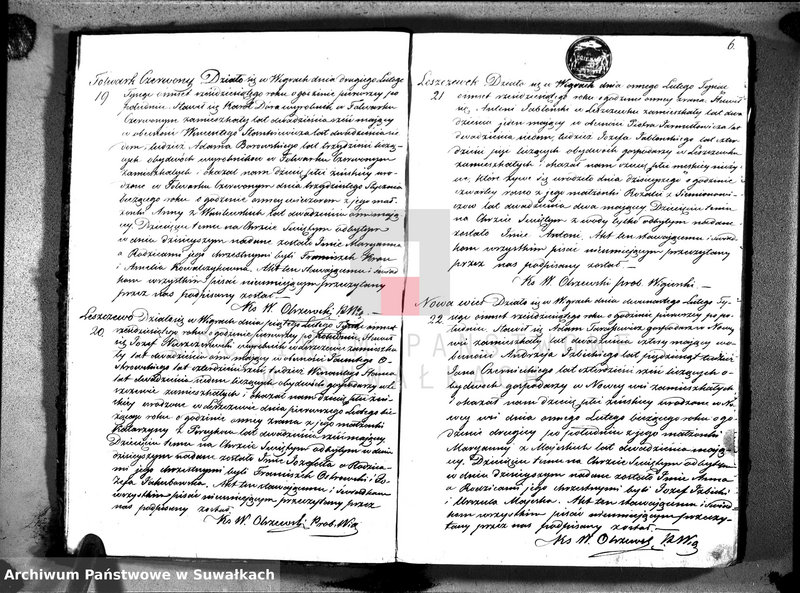 Folwark Czerwony Działo się w Wigrach dnia drugiego Lutego
19 Tysiąc ośmset sześćdziesiątego roku o godzinie pierwszej po
południu. Stawił się Karol Dora wyrobnik w Folwarku
Czerwonym zamieszkały lat dwadzieścia sześć mający
w obecności Wincentego lat dwadzieścia sie-
dem tudzież Adama Borowskiego lat trzydzieści liczą-
cych obydwóch wyrobników w Folwarku Czerwonym
zamieszkałych i okazał nam dziecię płci żeńskiej uro-
dzone w Folwarku Czerwonym dnia trzydziestego Stycznia
bieżącego roku o godzinie ósmej wieczorem z jego mał-
żonki Anny z lat dwadzieścia ośm mają-
cej. Dziecięciu temu na Chrzcie Świętym odbytym
w dniu dzisiejszym nadane zostało Imie Maryanna
a Rodzicami jego chrzestnymi byli Franciszek
i Amelia Kowalczykowna. Akt ten stawającemu i świad-
kom wszystkim pisać nieumiejącym przeczytany
przez nas podpisany został. —
Ks W. Obrzewski P. Wig.
Leszczewo Działo się w Wigrach dnia piątego Lutego Tysiąc ośmset
20. sześćdziesiątego roku o godzinie pierwszej po południu. Stawił
się Józef wyrobnik w Leszczewie zamieszka-
ły lat dwadzieścia ośm mający w obecności
lat czterdzieści sześć tudzież Wincentego
lat dwadzieścia siedem liczących obydwóch gospodarzy w Le-
szczewie zamieszkałych i okazał nam dziecię płci żeń-
skiej urodzone w Leszczewie dnia pierwszego Lutego bie-
żącego roku o godzinie ósmej zrana z jego małżonki
Katarzyny z lat dwadzieścia sześć mającej.
Dziecięciu temu na Chrzcie Świętym odbytym w dniu
dzisiejszym nadane zostało Imie Józefatta a Rodzica-
mi jego chrzestnymi byli Franciszek Ostrowski i Jó-
zefa Jakubowska. Akt ten stawającemu i świadkom
wszystkim pisać nieumiejącym przeczytany przez
nas podpisany został.
Ks W. Obrzewski Prob. Wig
6.
Leszczewek Działo się w Wigrach dnia ósmego Lutego Tysiąc
21 ośmset sześćdziesiątego roku o godzinie ósmej zrana. Stawił
się Antoni Jabłoński w Leszczewku zamieszkały lat dwa-
dzieścia jeden mający w obecności Piotra lat
dwadzieścia siedem tudzież Józefa Jabłońskiego lat czter-
dzieści pięć liczących obydwóch gospodarzy w Leszczewku
zamieszkałych i okazał nam dziecię płci męskiej nieży-
we, które żywe się urodziło dnia dzisiejszego o godzinie
czwartej rano z jego małżonki Rozalii z Siemionowi-
czów lat dwadzieścia dwa mającej Dziecięciu temu
na Chrzcie Świętym z wody tylko odbytym nadane
zostało Imie Antoni. Akt ten stawającemu i świad-
kom wszystkim pisać nieumiejącym przeczytany
przez nas podpisany został. —
Ks W. Obrzewski prob. Wigierski. —
Nowa wieś Działo się w Wigrach dnia dwunastego Lutego Ty-
22. siąc ośmset sześćdziesiątego roku o godzinie pierwszej po po-
łudniu. Stawił się Adam gospodarz w Nowej
wsi zamieszkały lat dwadzieścia cztery mający w o-
becności Andrzeja lat pięćdziesiąt tudzież
Jana lat czterdzieści sześć liczących o-
bydwóch gospodarzy w Nowej wsi zamieszkałych
i okazał nam dziecię płci żeńskiej urodzone w No-
wej wsi dnia ósmego Lutego bieżącego roku o go-
dzinie drugiej po południu z jego małżonki
Maryanny z Majewskich lat dwadzieścia mają-
cej. Dziecięciu temu na Chrzcie Świętym odbytym
w dniu dzisiejszym nadane zostało Imie Anna
a Rodzicami jego chrzestnymi byli Józef
i Urszula Majewska. Akt ten stawającemu i świad-
kom wszystkim pisać nieumiejącym przeczy-
tany przez nas podpisany został.
Ks W. Obrzewski P. Wig
Archiwum Państwowe w Suwałkach